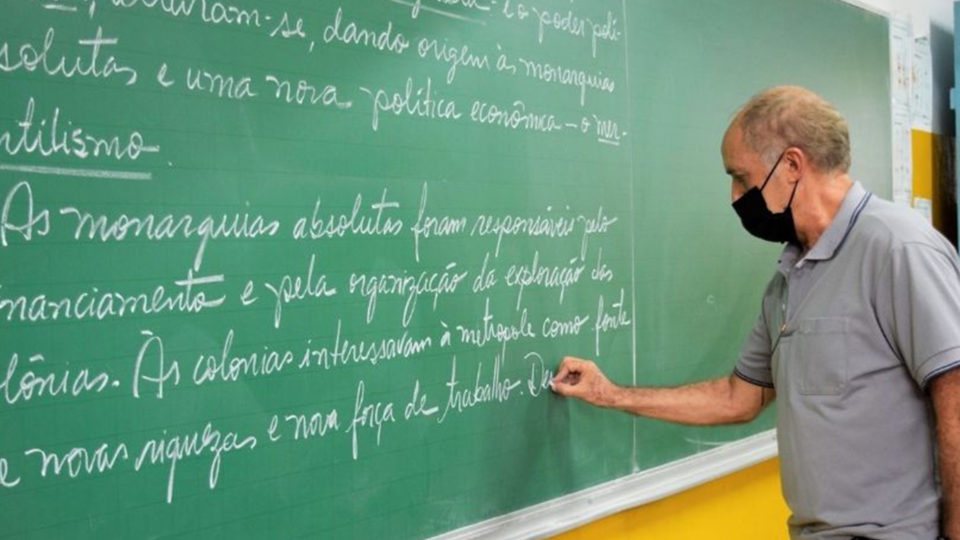 aram-se, dando origem às monarquias
solutas e uma nova política econômica – o mer-
ntilismo
As monarquias absolutas foram responsáveis pelo
nanciamento e pela organização da exploração das
lônias. Às colonias interessavam à metrópole como fonte
e novas riquezas e nova força de trabalho. De